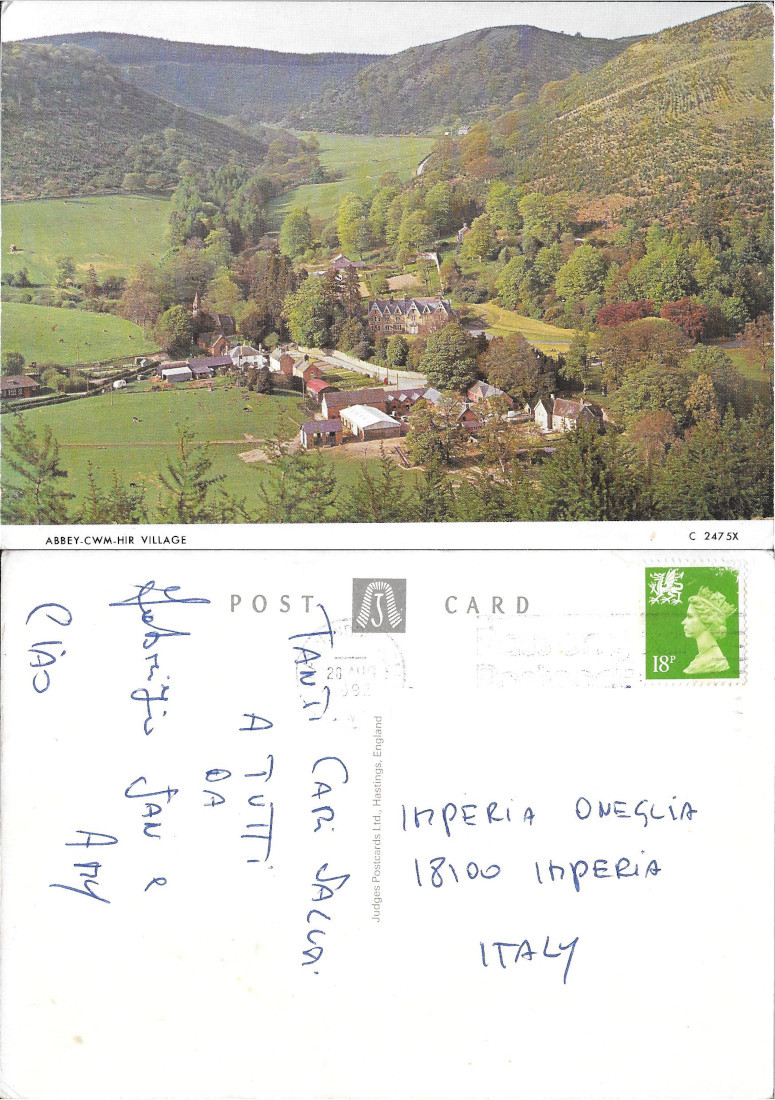 ABBEY-CWM-HIR VILLAGE
C 2475X
POST CARD
18P
28 AUG
Judges Postcards Ltd., Hastings, England
TANTI CARI SALUTI
A TUTTI
DA
JAN e
AMY
CIAO
IMPERIA ONEGLIA
18100 IMPERIA
ITALY